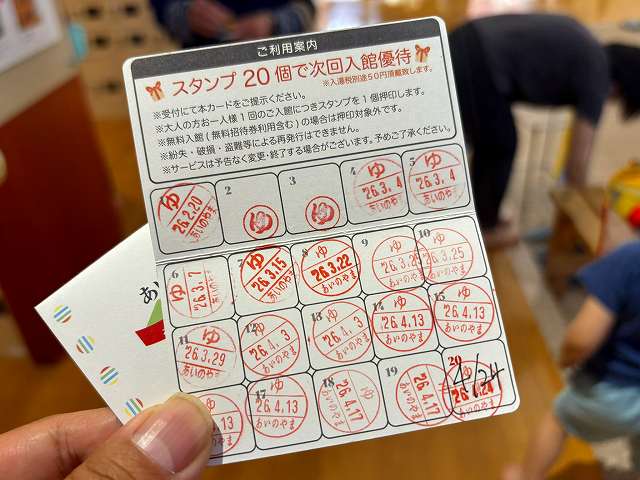 ご利用案内
スタンプ20個で次回入館優待
※入湯税別途50円頂戴致します。
※受付にて本カードをご提示ください。
※大人の方お一人様1回のご入館につきスタンプを1個押印します。
※無料入館(無料招待券利用含む)の場合は押印対象外です。
※紛失・破損・盗難等による再発行はできません。
※サービスは予告なく変更・終了する場合がございます。予めご了承ください。
ゆ
26.2.20
あいのやま
2
ゆ
3
ゆ
4
ゆ
'26.3.4
あいのやま
5
ゆ
'26.3.4
あいのやま
6
ゆ
'26.3.7
あいのやま
ゆ
'26.3.15
あいのやま
8
ゆ
'26.3.22
あいのやま
9
ゆ
あいのやま
10
ゆ
'26.3.25
あいのやま
11
ゆ
'26.3.29
あいのやま
12
ゆ
'26.4.3
あいのやま
13
ゆ
'26.4.3
あいのやま
14
ゆ
'26.4.13
あいのやま
15
ゆ
'26.4.13
あいのやま
ゆ
4.13
あいのやま
17
ゆ
'26.4.13
あいのやま
18
ゆ
'26.4.17
あいのやま
19
ゆ
'26.4.17
あいのやま
20
4/24
ゆ
'26.4.24
あいのやま
あい